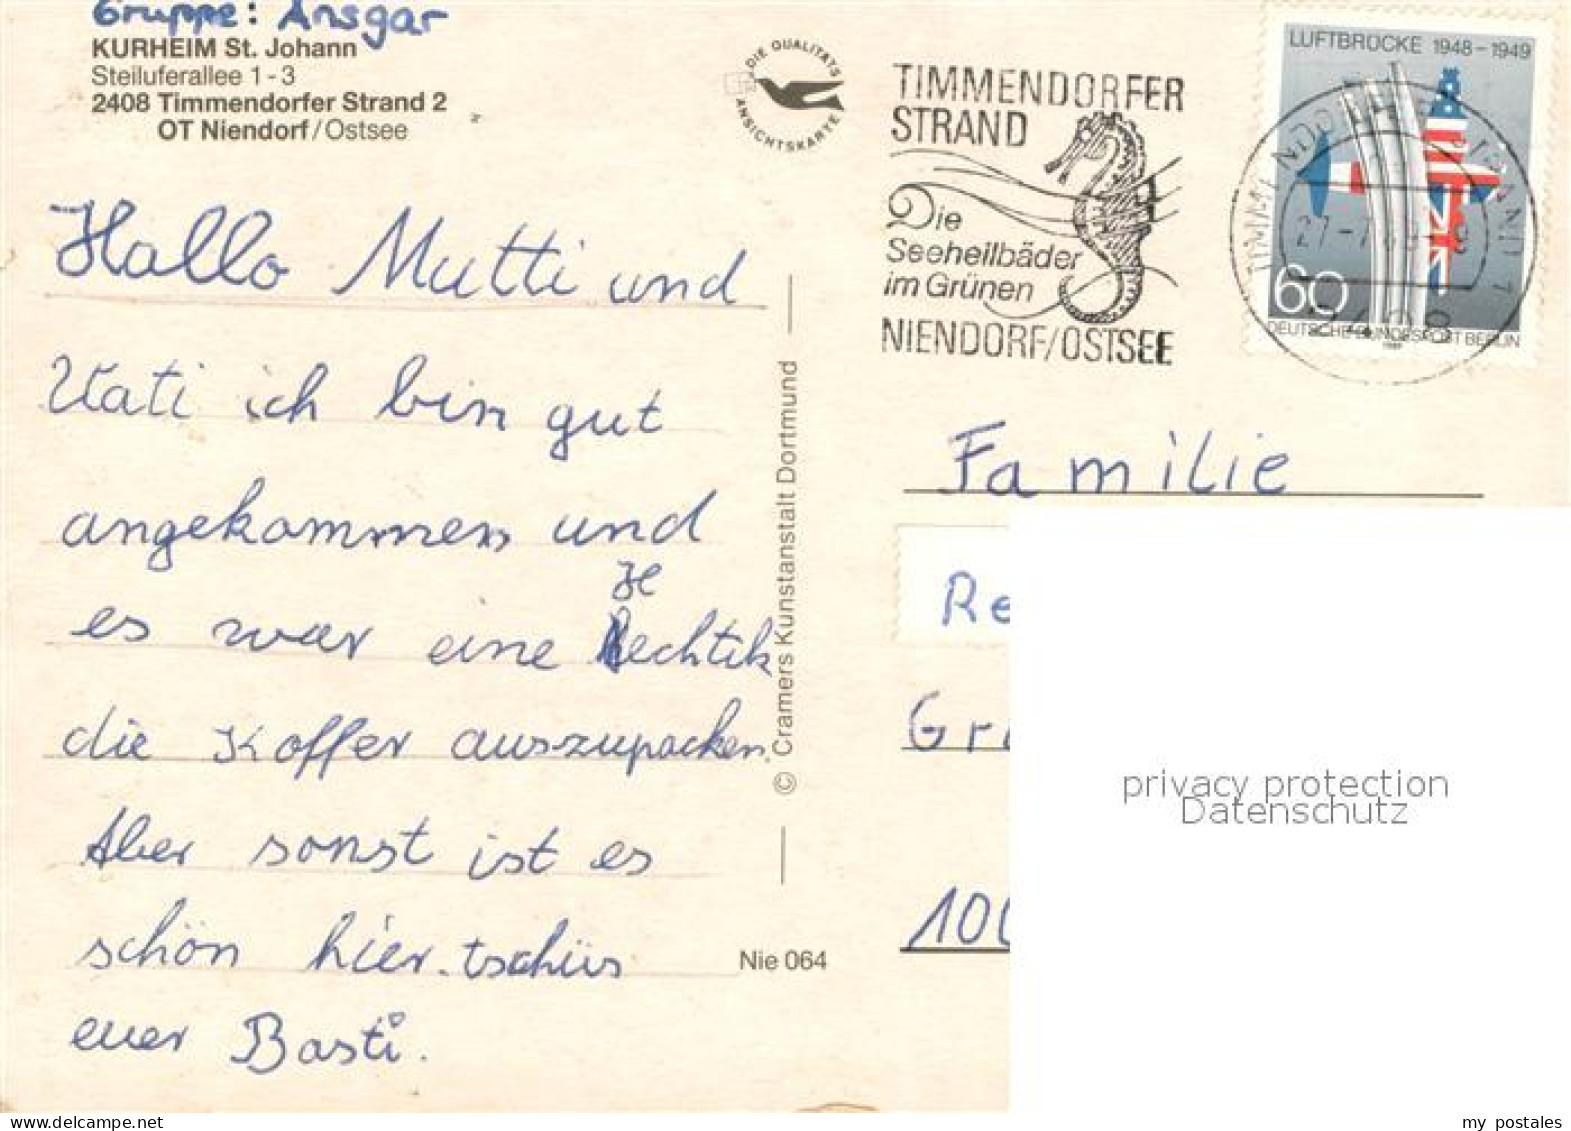 Gruppe: Ansgar
KURHEIM St. Johann
Steiluferallee 1 - 3
2408 Timmendorfer Strand 2
OT Niendorf/Ostsee
DIE QUALITÄTS
ANSICHTSKARTE
TIMMENDORFER
STRAND
Die
Seeheilbäder
im Grünen
NIENDORF/OSTSEE
LUFTBRÜCKE 1948-1949
60
DEUTSCHE BUNDESPOST BERLIN
Hallo Mutti und
Vati ich bin gut
angekommen und
es war eine
He
echtik
die Koffer auszupacken.
Aber sonst ist es
schön hier. tschüs
euer Basti.
© Cramers Kunstanstalt Dortmund
Nie 064
Familie
Re
Gr
100
privacy protection
Datenschutz
my postales